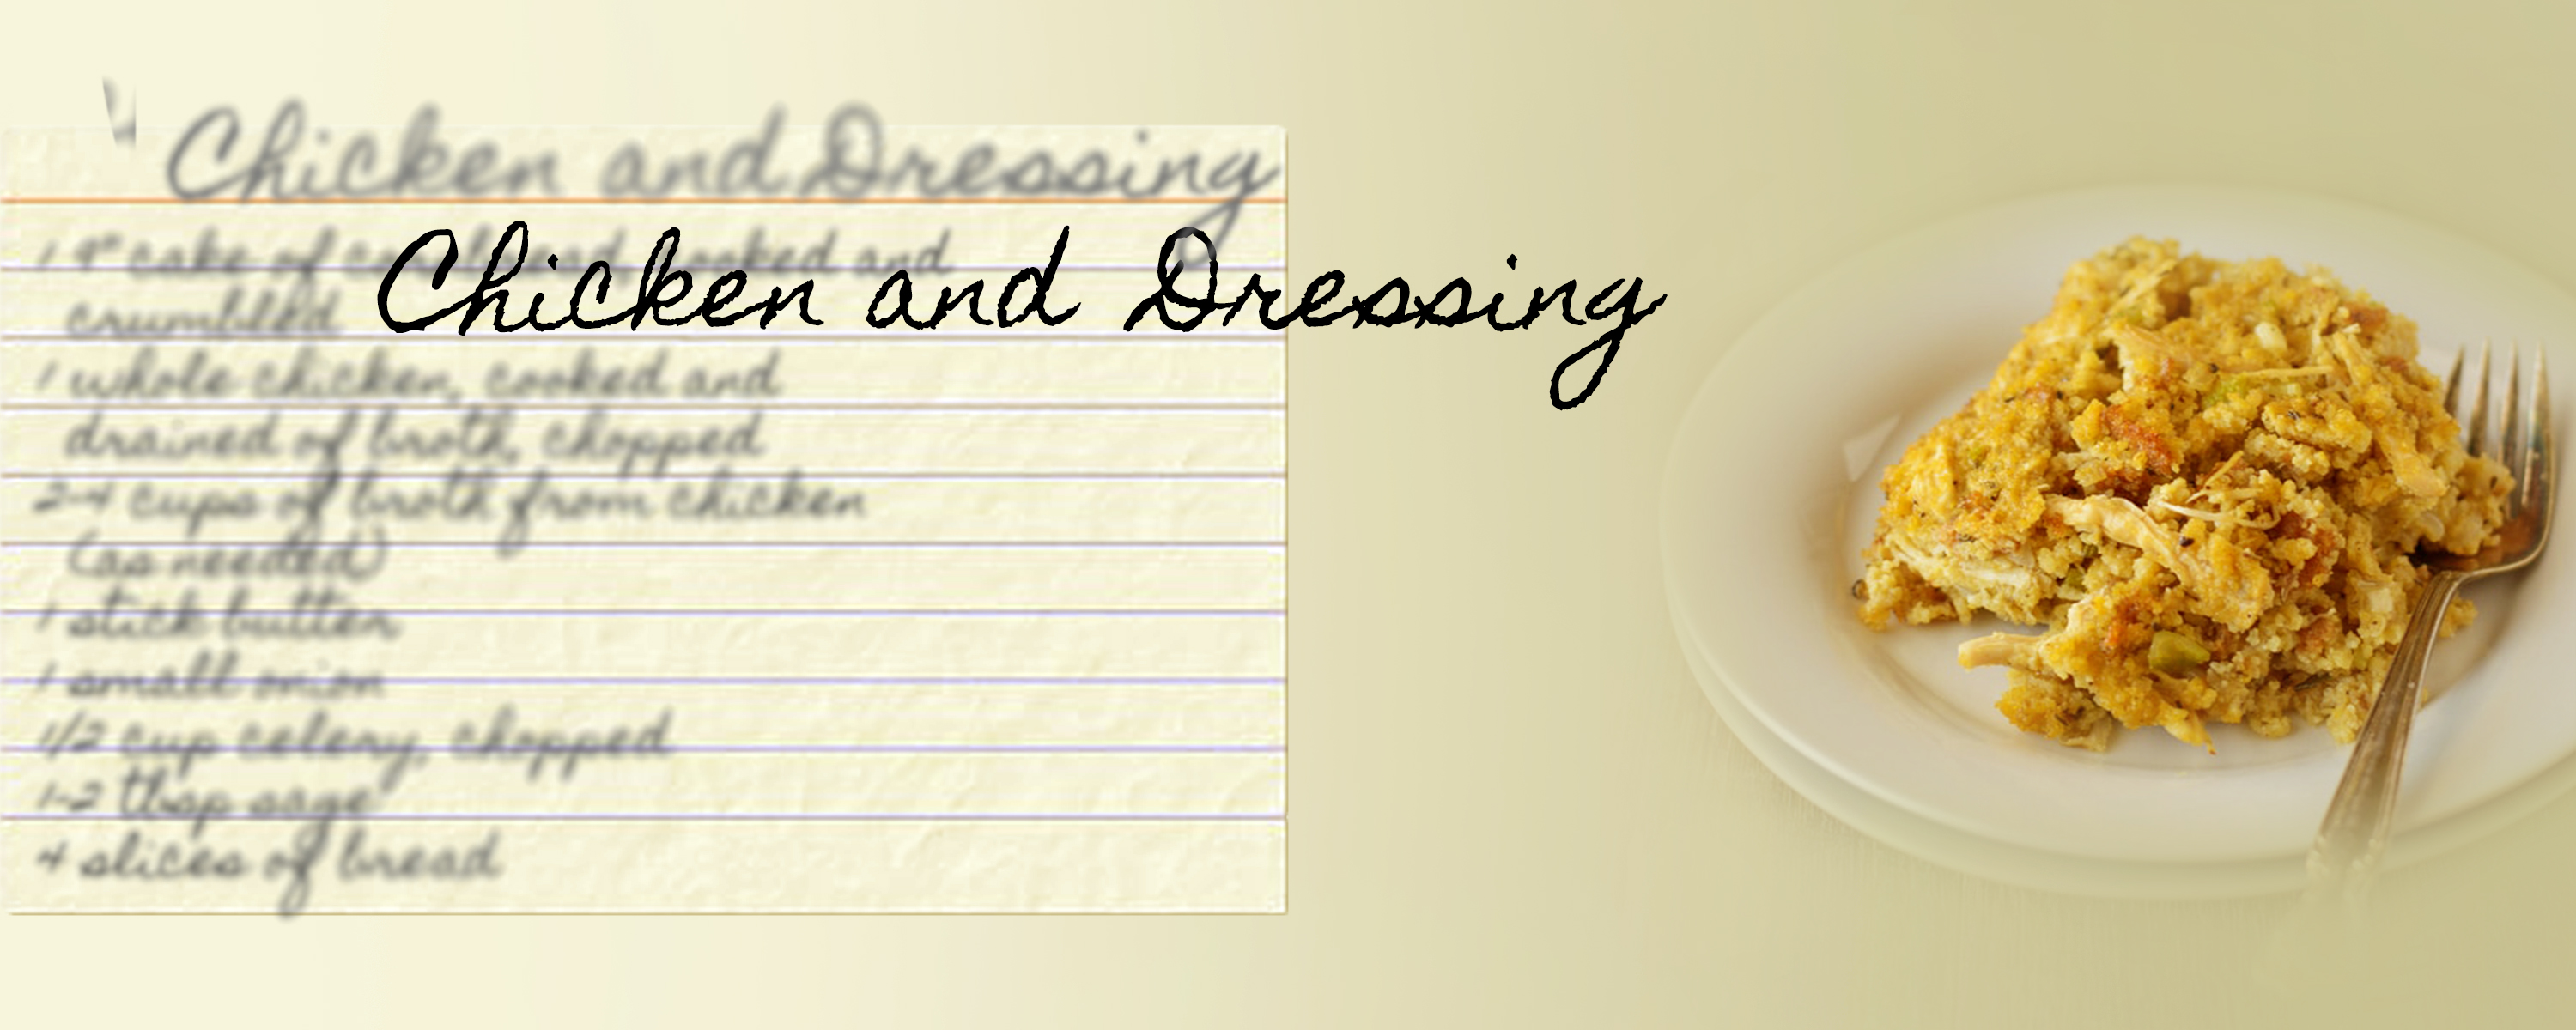 Chicken and Dressing
1 9" cake of cooked and
Chicken and Dressing
crumbled
1 whole chicken, cooked and
drained of broth, chopped
2-4 cups of broth from chicken
(as needed)
1 stick butter
1 small onion
1/2 cup celery, chopped
1-2 tbsp sage
4 slices of bread